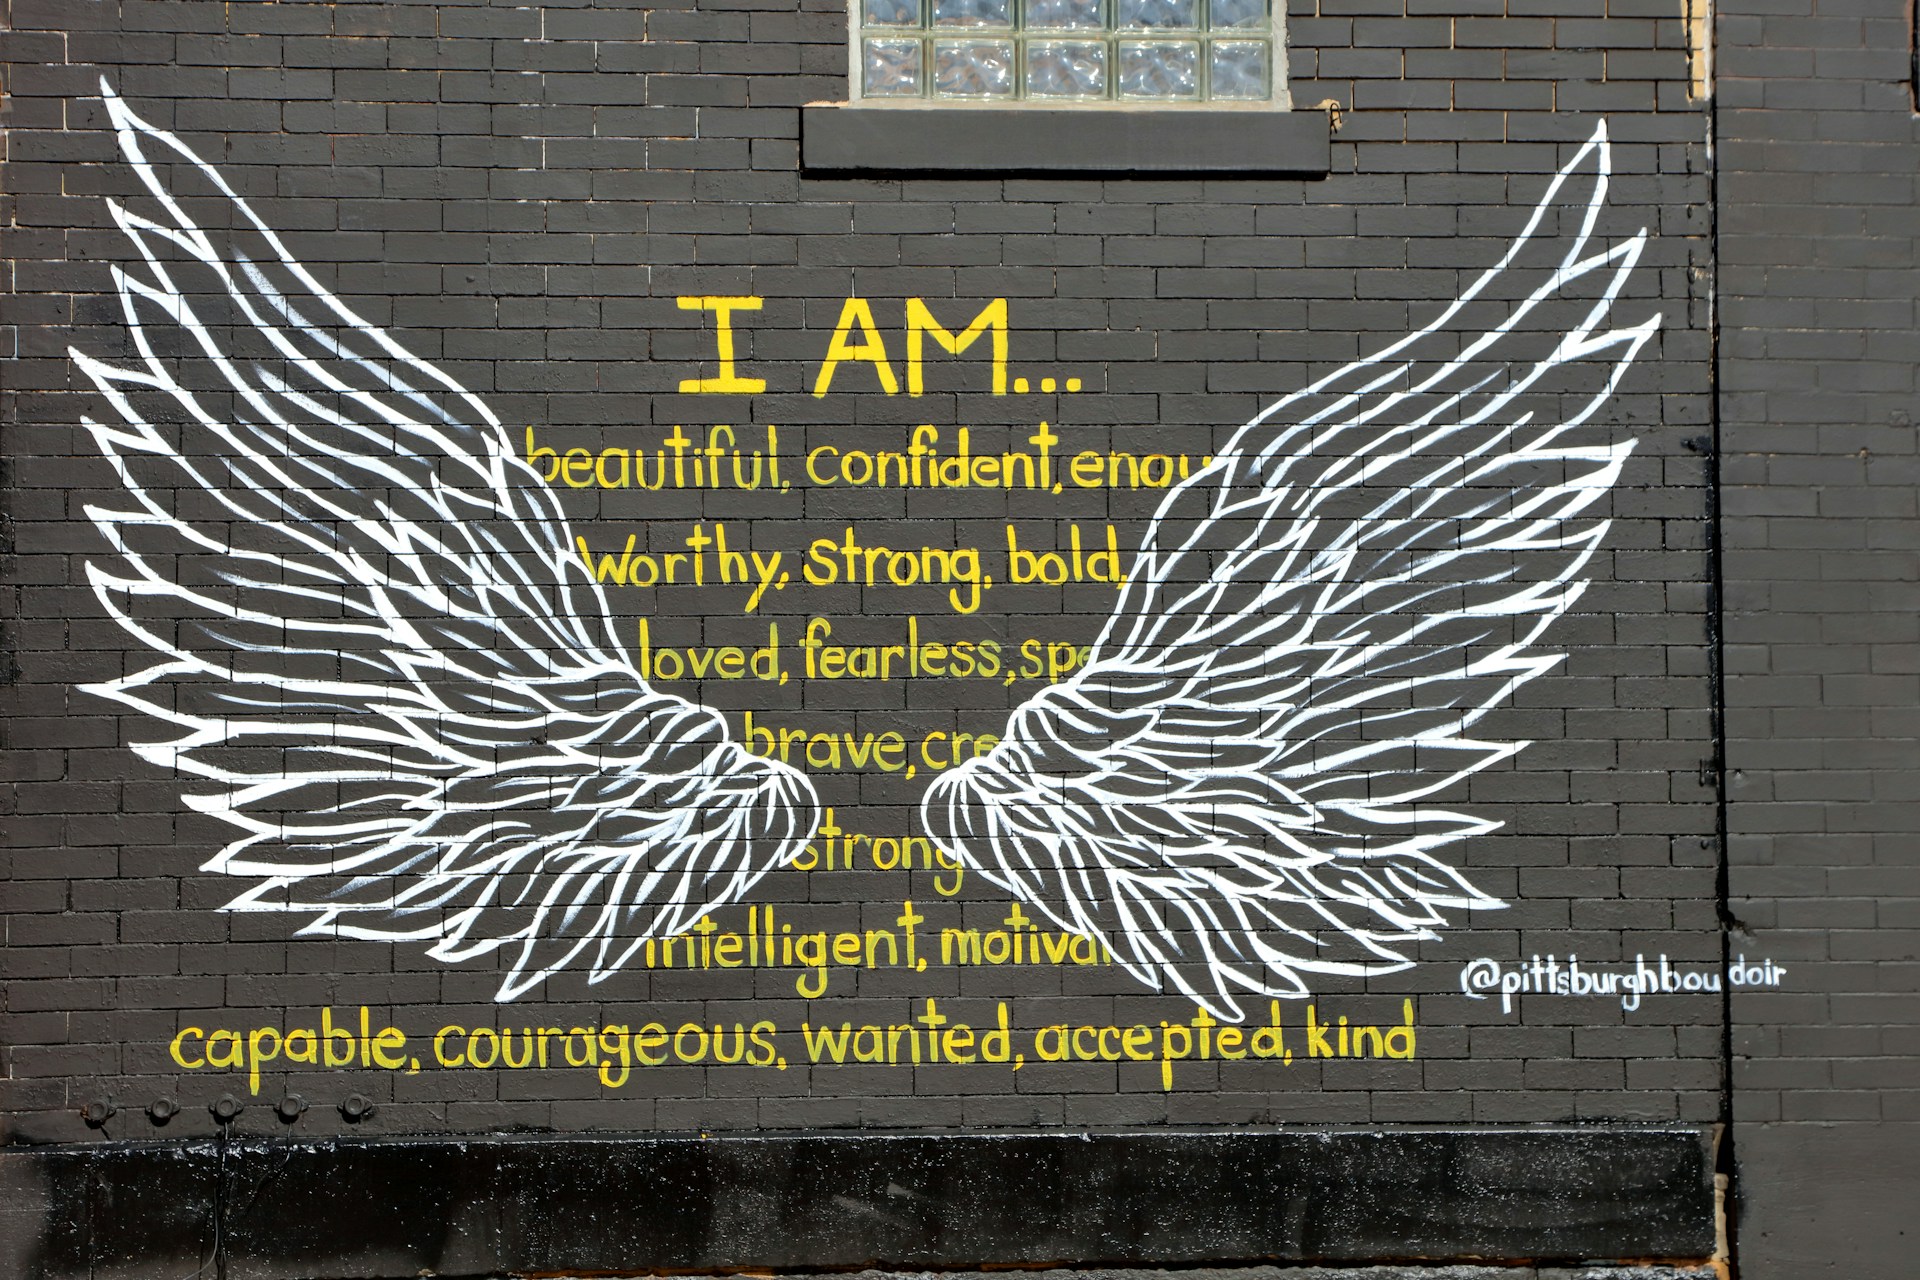 I AM...
beautiful, confident, enou
Worthy, strong, bold,
loved, fearless, spe
brave, cre
strong
intelligent, motiva
capable, courageous, wanted, accepted, kind
@pittsburghboudoir